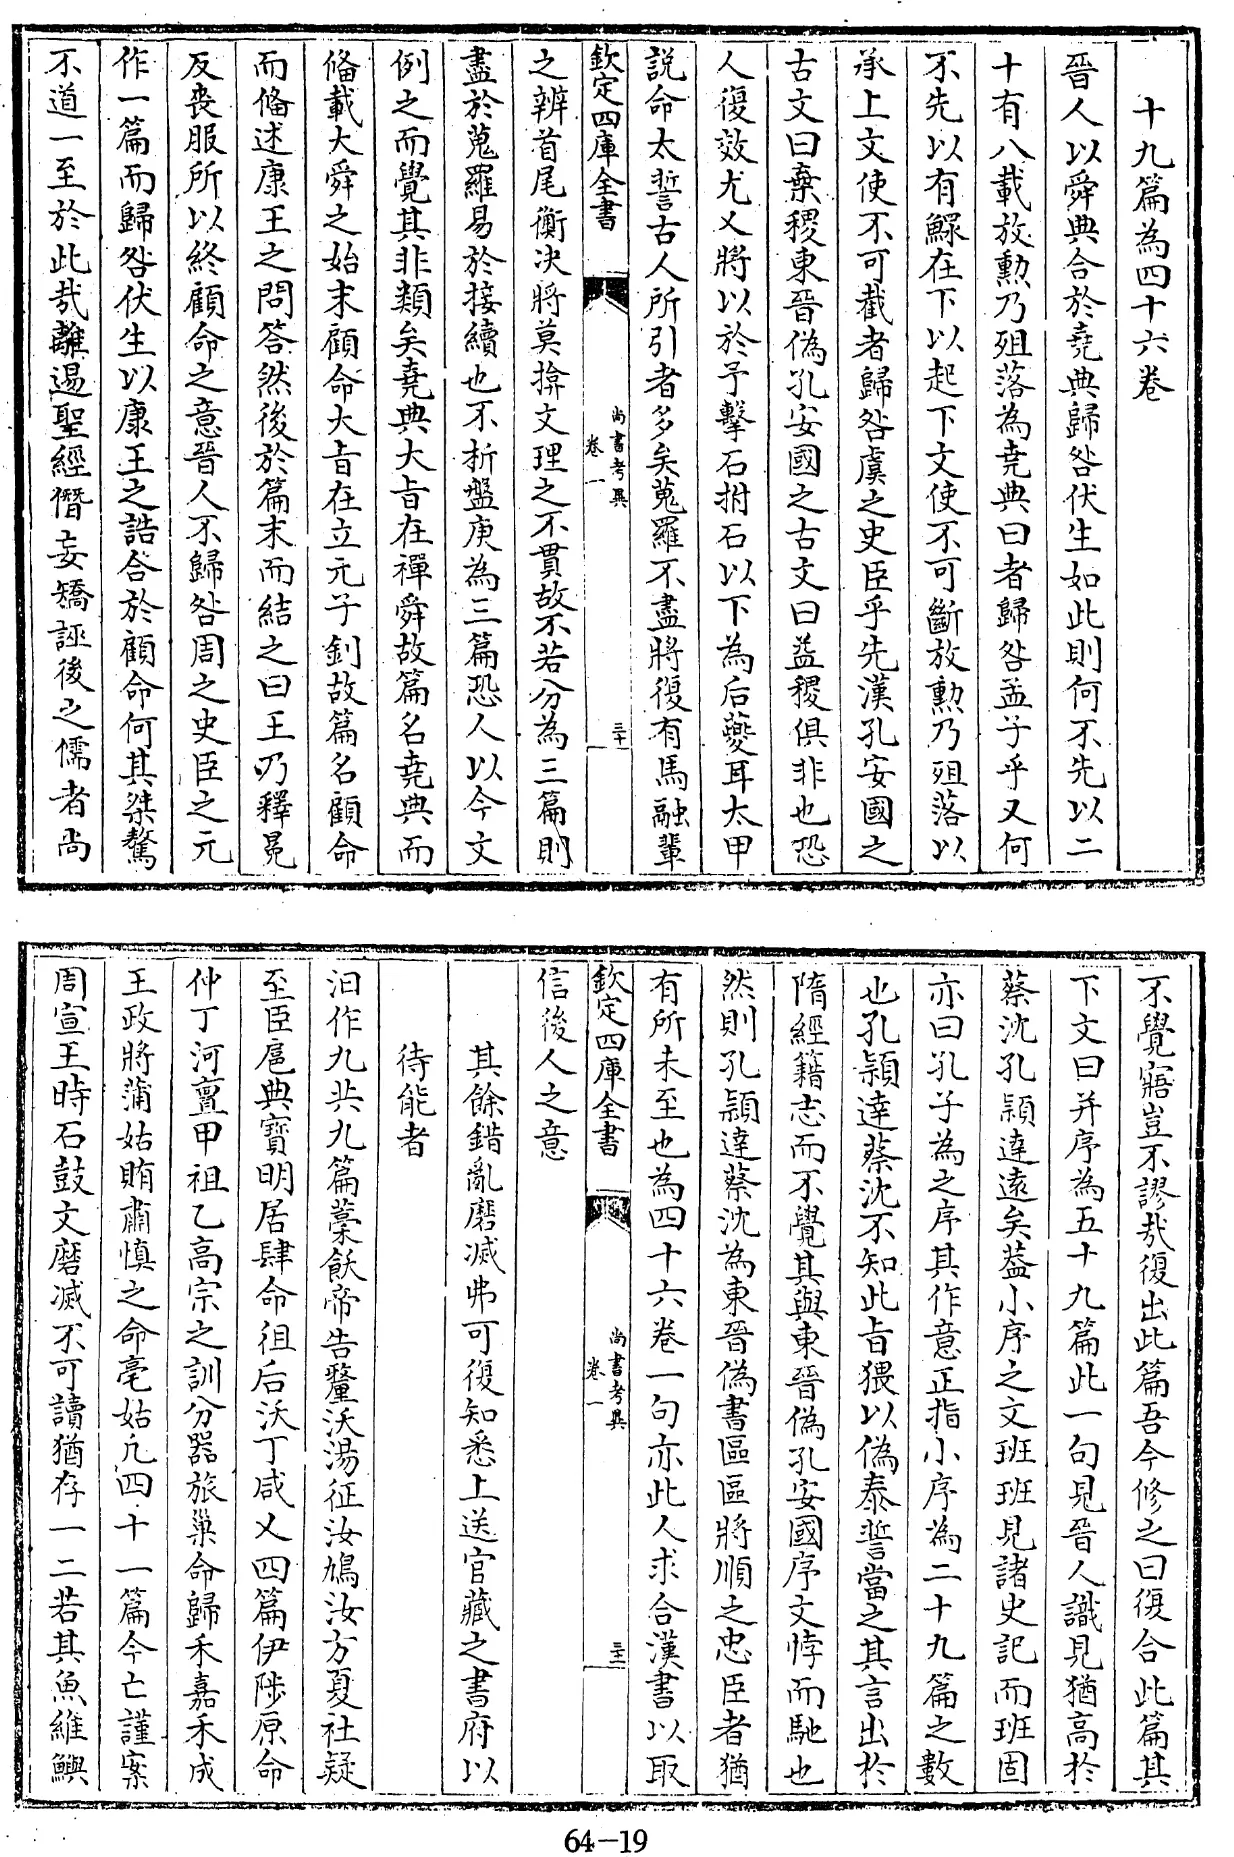 十九篇為四十六卷
晉人以舜典合於堯典歸咎伏生如此則何不先以二
十有八載放勲乃殂落為堯典曰者歸咎孟子乎又何
不先以有鰥在下以起下文使不可斷放勲乃殂落以
承上文使不可截者歸咎虞之史臣乎先漢孔安國之
古文曰棄稷東晉偽孔安國之古文曰益稷俱非也恐
人復效尤又將以於予擊石拊石以下為后夔耳太甲
説命太誓古人所引者多矣蒐羅不盡將復有馬融輩
欽定四庫全書
尚書考異
卷一
三十
之辨首尾衡決將莫揜文理之不貫故不若分為三篇則
盡於蒐羅易於接續也不析盤庚為三篇恐人以今文
例之而覺其非類矣堯典大旨在禪舜故篇名堯典而
備載大舜之始末顧命大旨在立元子釗故篇名顧命
而備述康王之問答然後於篇末而結之曰王乃釋冕
反喪服所以終顧命之意晉人不歸咎周之史臣之元
作一篇而歸咎伏生以康王之誥合於顧命何其桀驁
不道一至於此哉離逷聖經僭妄矯誣後之儒者尚
不覺寤豈不謬哉復出此篇吾今修之曰復合此篇其
下文曰并序為五十九篇此一句見晉人識見猶高於
蔡沈孔頴達遠矣葢小序之文班班見諸史記而班固
亦曰孔子為之序其作意正指小序為二十九篇之數
也孔頴達蔡沈不知此旨猥以偽泰誓當之其言出於
隋經籍志而不覺其與東晉偽孔安國序文悖而馳也
然則孔頴達蔡沈為東晉偽書區區將順之忠臣者猶
有所未至也為四十六卷一句亦此人求合漢書以取
欽定四庫全書
尚書考異
卷一
三十一
信後人之意
其餘錯亂磨滅弗可復知悉上送官藏之書府以
待能者
汨作九共九篇槀飫帝告釐沃湯征汝鳩汝方夏社疑
至臣扈典寶明居肆命徂后沃丁咸乂四篇伊陟原命
仲丁河亶甲祖乙高宗之訓分器旅巢命歸禾嘉禾成
王政將蒲姑賄肅慎之命亳姑凡四十一篇今亡謹案
周宣王時石鼓文磨滅不可讀猶存一二若其魚維鱮
64-19